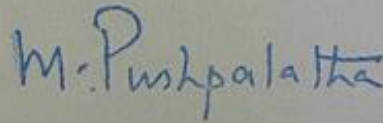 M. Pushpalatha